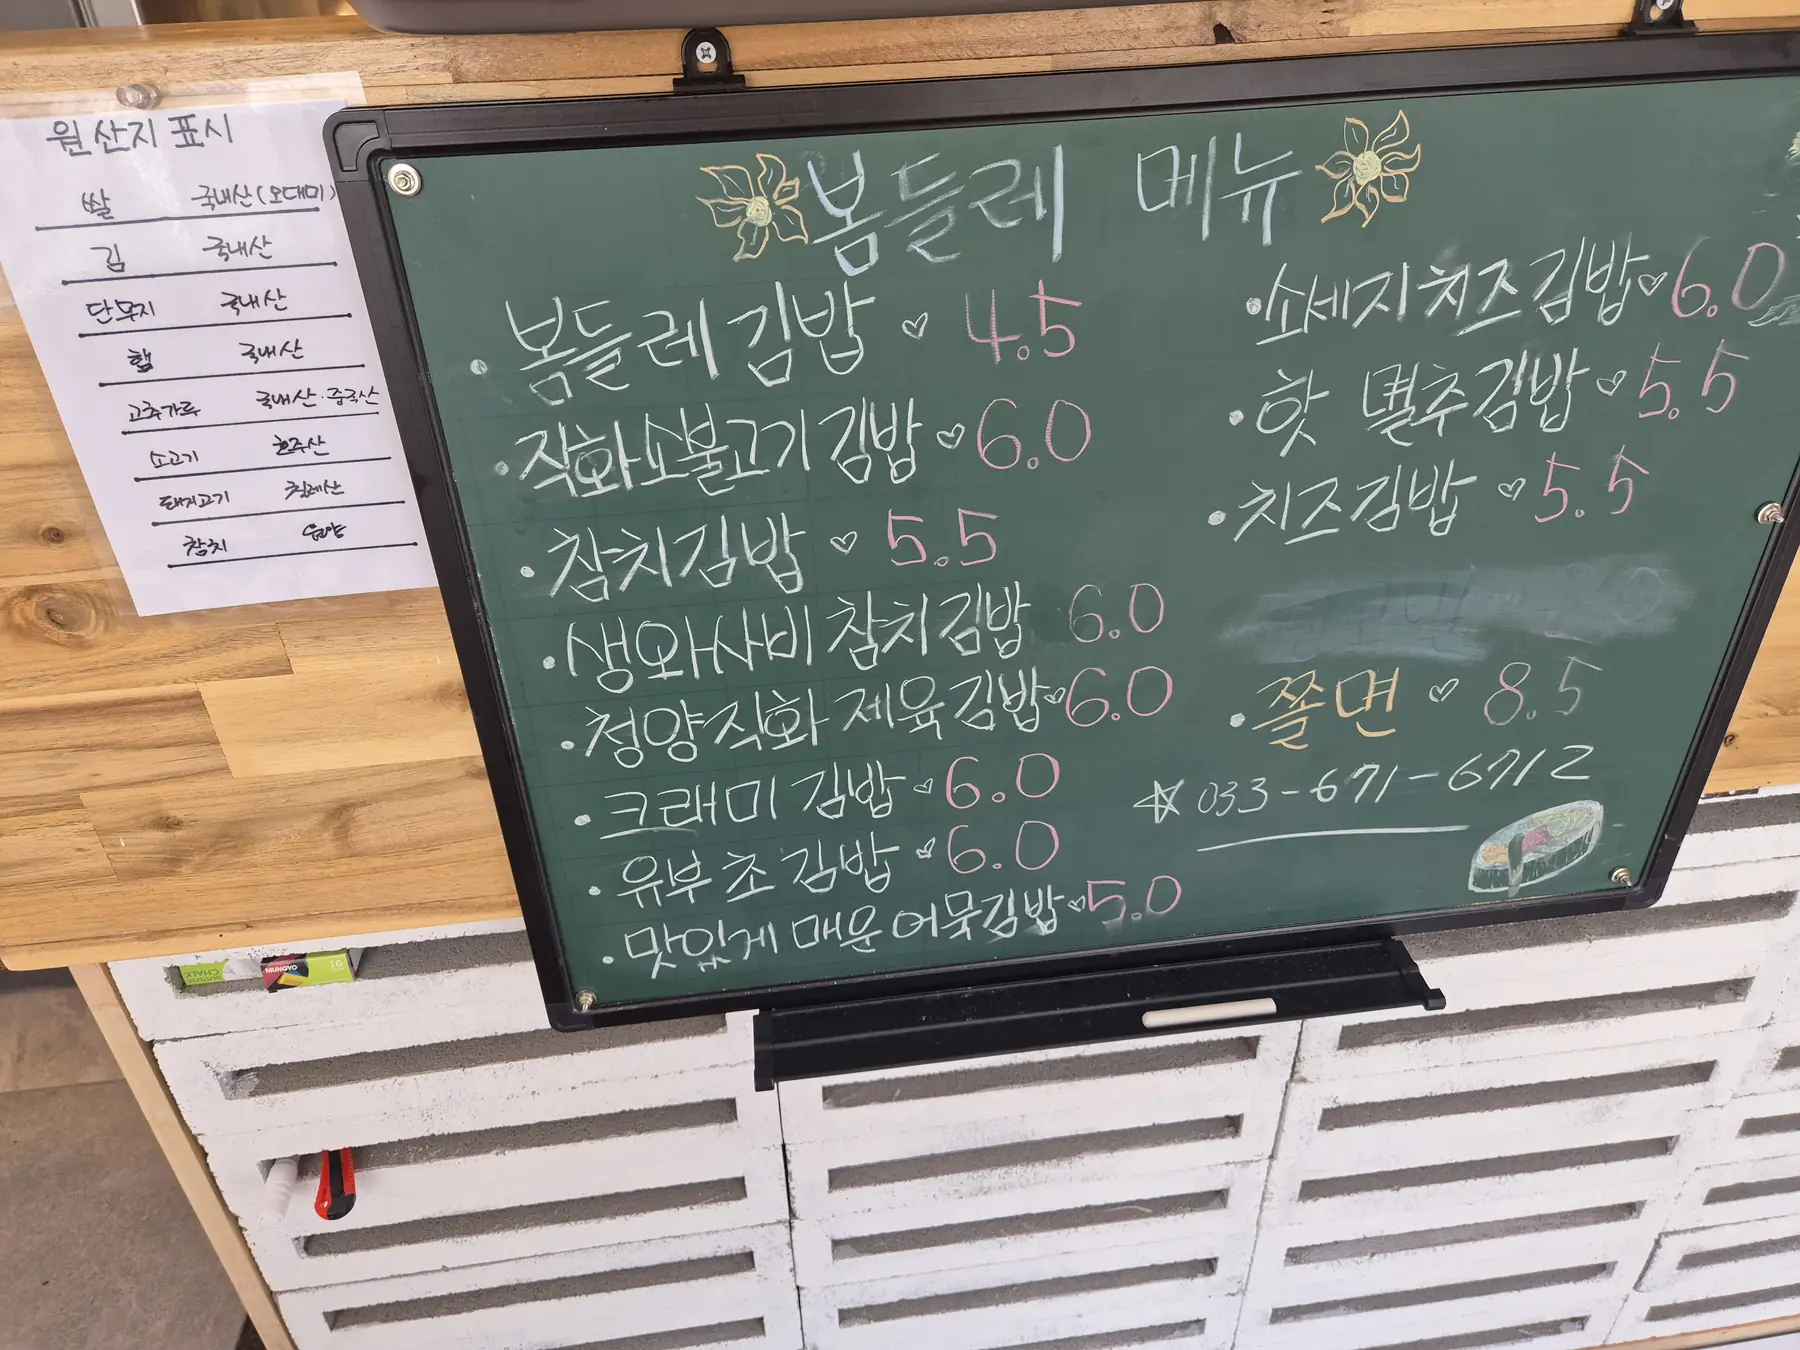 원산지 표시
쌀 국내산(오대미)
김 국내산
단무지 국내산
햄 국내산
고추가루 국내산·중국산
소고기 호주산
돼지고기 칠레산
참치 원양
봄들레 메뉴
·봄들레 김밥 ♡ 4.5
·직화소불고기 김밥 ♡ 6.0
·참치김밥 ♡ 5.5
·생와사비 참치김밥 6.0
·청양직화 제육김밥 ♡ 6.0
·크래미 김밥 ♡ 6.0
·유부초 김밥 ♡ 6.0
·맛있게 매운 어묵김밥 ♡ 5.0
·소세지치즈김밥 ♡ 6.0
·핫 멸추김밥 ♡ 5.5
·치즈김밥 ♡ 5.5
·쫄면 ♡ 8.5
☆ 033-671-6712
CHALK
MUNGYO
10